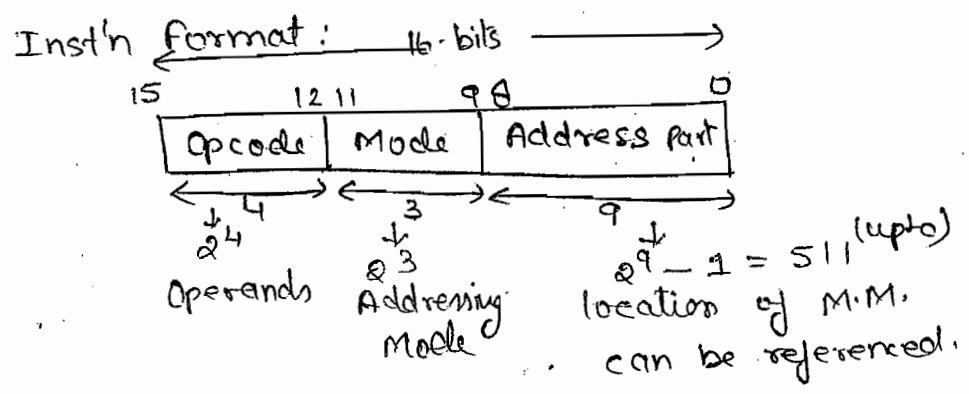 Inst'n format: 16-bits
15 12 11 9 8 0
Opcode Mode Address part
4 3 9
2^4 2^3 2^9 - 1 = 511 (upto)
Operands Addressing location of M.M.
Mode can be referenced.